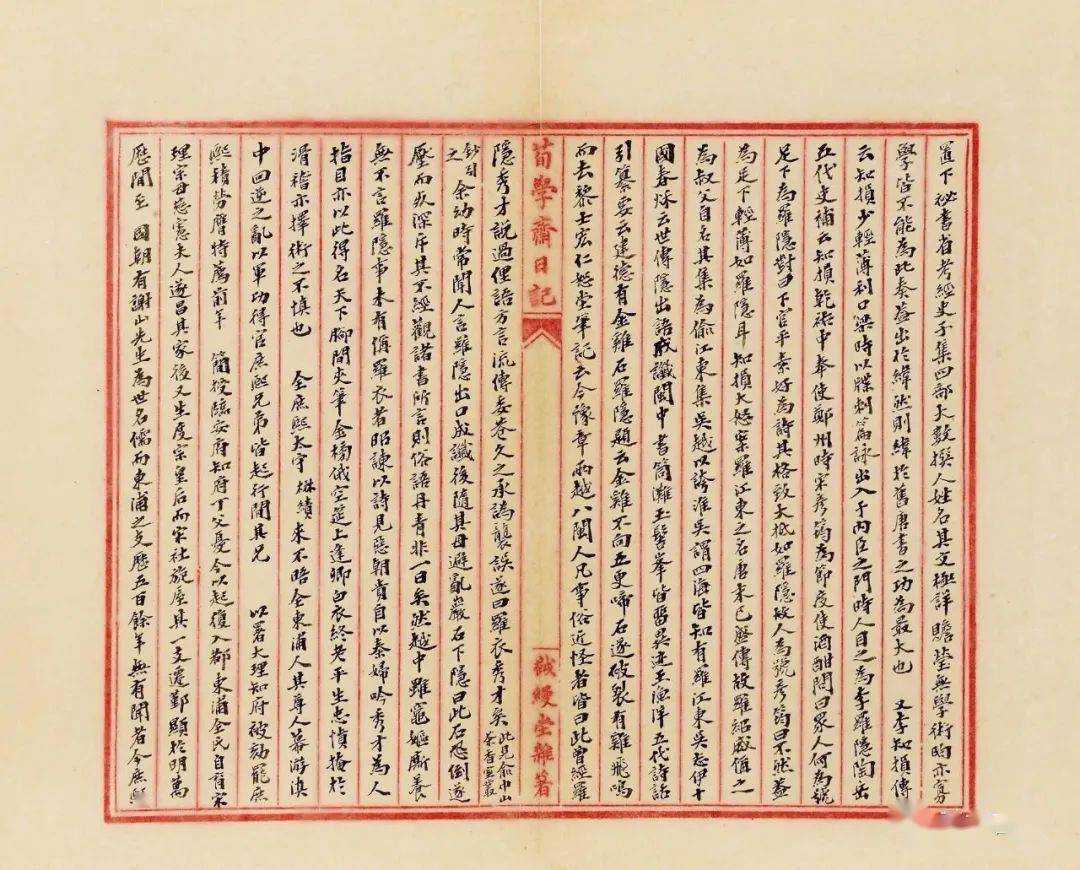 置下祕書省考經史子集四部大數撰人姓名其文極詳贍瑩無學術昫亦寡
學皆不能為此奏蓋出於緯然則緯於舊唐書之功為最大也　又李知損傳
云知損少輕薄利口梁時以牒刺篇詠出入于內臣之門時人目之為李羅隱陶岳
五代史補云知損乾祐中奉使鄭州時宋彥筠為節度使酒酣問曰眾人何為號
足下為羅隱對曰下官平素好為詩其格致大抵如羅隱故人為號彥筠曰不然蓋
為足下輕薄如羅隱耳知損大怒案羅江東之名唐末已盛傳故羅紹威值之
為叔父自名其集為偷江東集吳越以誇淮吳謂四海皆知有羅江東吳志伊十
國春秋云世傳隱出語成讖閩中書筒灘玉髻峯皆留異迹王漁洋五代詩話
引纂要云建德有金雞石羅隱題云金雞不向五更啼石遂破裂有雞飛鳴
而去黎士宏仁恕堂筆記云今豫章兩越八閩人凡事俗近怪者皆曰此曾經羅
荀學齋日記
越縵堂雜著
隱秀才說過俚語方言流傳委巷久之承譌襲誤遂曰羅衣秀才矣此見俞中山茶香室叢
鈔引之　余幼時常聞人言羅隱出口成讖後隨其母避亂巖石下隱曰此石恐倒遂
壓而歿深斥其不經觀諸書所言則俗語丹青非一日矣然越中雖竈嫗廝養
無不言羅隱事未有偁羅衣者昭諫以詩見惡朝貴自以秦婦吟秀才為人
指目亦以此得名天下腳間夾筆金榜俄空筵上逢卿白衣終老平生忠憤掩於
滑稽亦擇術之不慎也　全庶熙太守楙績來不晤全東浦人其尊人幕游滇
中回逆之亂以軍功得官庶熙兄弟皆起行間其兄　以署大理知府被劾罷庶
熙積勞膺特薦前年　簡授臨安府知府丁父憂今以起復入都東浦全氏自育宋
理宗母慈憲夫人遂昌其家後又生度宗皇后而宋社旋屋其一支遷鄞顯於明萬
歷閒至　國朝有謝山先生為世名儒而東浦之支歷五百餘年無有聞者今庶熙